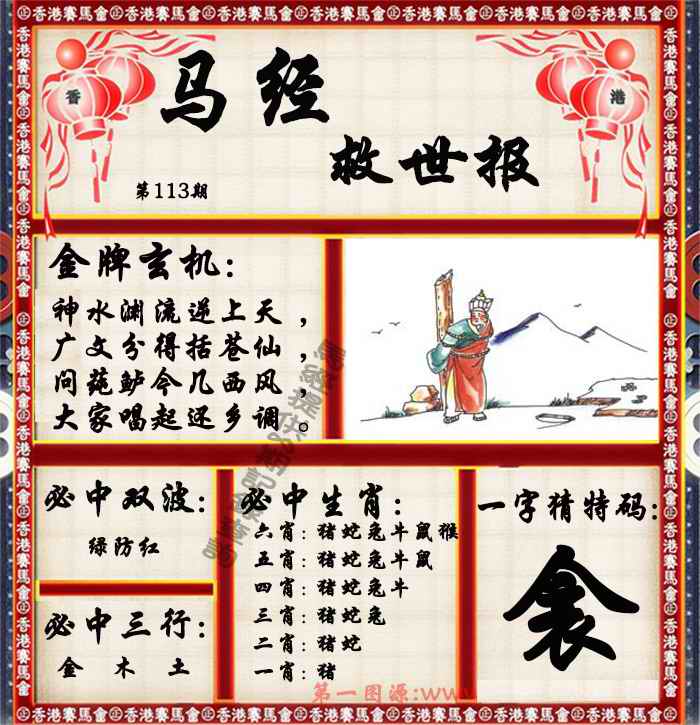 香港賽馬會
香
港
马经
救世报
第113期
金牌玄机:
神水渊流逆上天,
广文分得括苍仙,
问苑鲈今几西风,
大家唱起还乡调。
必中双波:
绿防红
必中三行:
金 木 土
必中生肖:
六肖:猪蛇兔牛鼠猴
五肖:猪蛇兔牛鼠
四肖:猪蛇兔牛
三肖:猪蛇兔
二肖:猪蛇
一肖:猪
一字猜特码:
第一图源:www